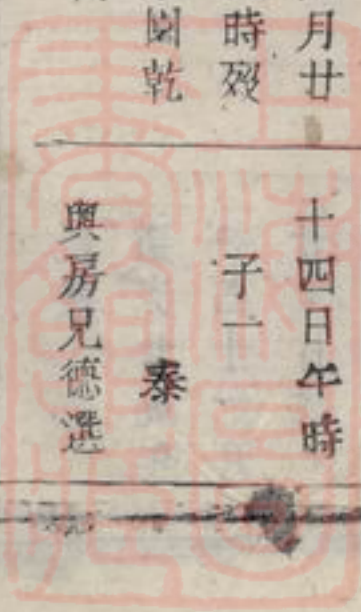 月廿
時歿
園乾
十四日午時
子一
泰
與房兄德選